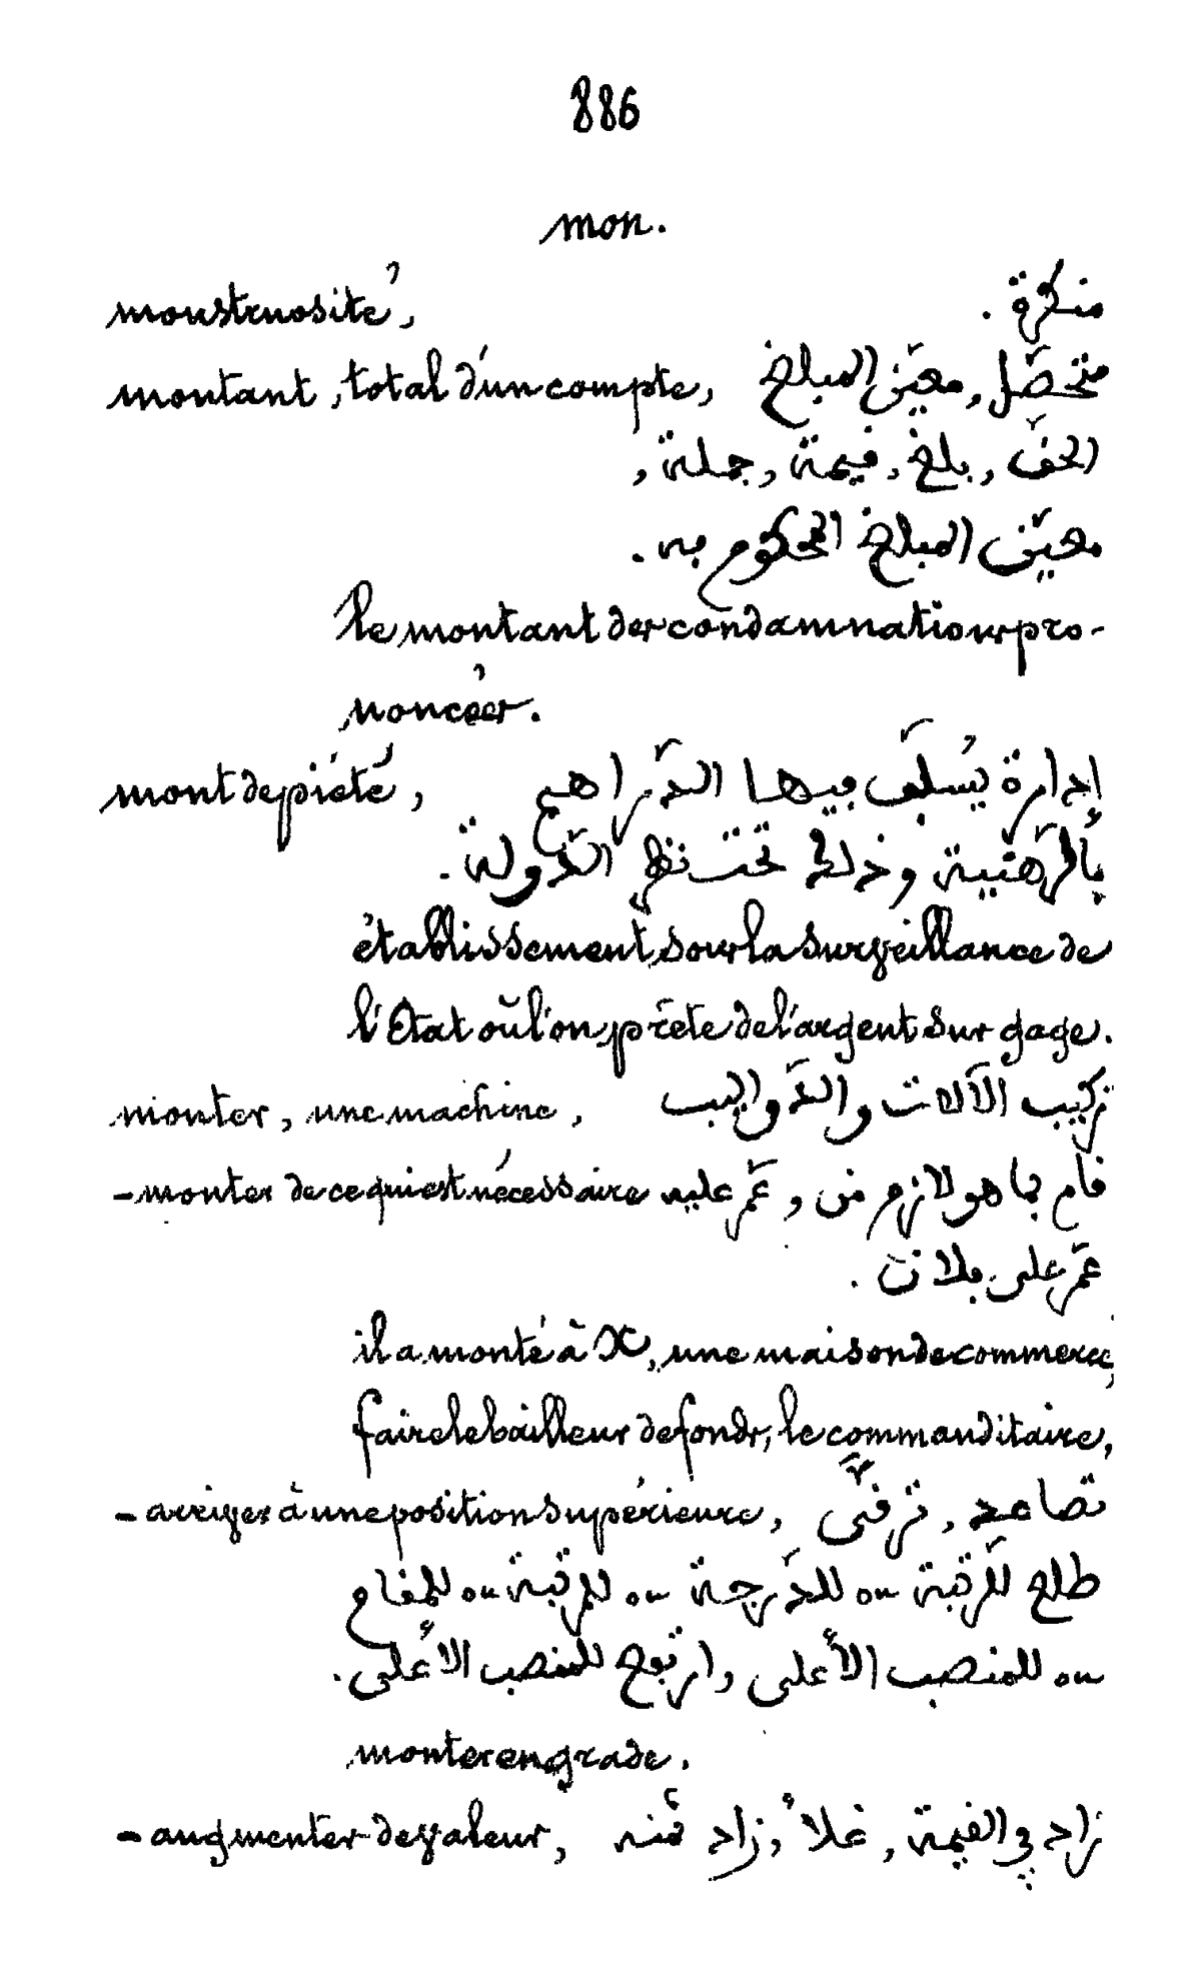 886
mon.
monstruosité, منكرة .
montant, total d'un compte, متحصّل, معيّن المبلغ
الحقّ, بلغ, قيمة, جملة,
معيّن المبلغ المحكوم به .
le montant des condamnations pro-
noncées.
mont de piété, إدارة يُسلّف فيها الدّراهم
بالرّهنية وذلك تحت نظر الدّولة .
établissement, sous la surveillance de
l'État où l'on prête de l'argent sur gage.
monter, une machine, تركيب الآلات والدّواليب
- monter de ce qui est nécessaire قام بما هو لازم من, عمّر عليه
عمّر على فلان .
il a monté à X, une maison de commerce,
faire le bailleur de fonds, le commanditaire,
- arriver à une position supérieure, تصاعد, ترقّى
طلع للرّتبة ou للدّرجة ou للمرتبة ou للمقام
ou للمنصب الأعلى, ارتفع للمنصب الأعلى.
monter en grade.
- augmenter de valeur, زاد في القيمة, غلا, زاد ثمنه